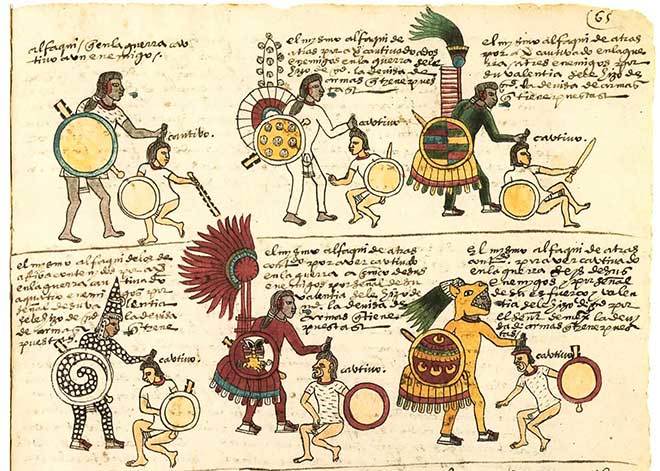 65
alfaqui / q̄ en la guerra cau
tivo a un enemigo /
cautivo.
el mismo alfaqui de atras
por aver cautivado dos
enemigos en la guerra se le
hizo la devisa de
armas q̄ tiene puestas
cautivo.
el mismo alfaqui de atras
por a cautivado en la gue
rra a tres enemigos por
su valentia se le hizo
la devisa de armas
q̄ tiene puestas
cautivo.
el mismo alfaqui de los de
por
en la guerra cautivado
a quatro enemigos por
señal de su valentia
se le hizo la devisa
de armas q̄ tiene
puestas
cautivo.
el mismo alfaqui de atras
por aver cautivado
en la guerra a cinco
enemigos por señal de su
valentia se le hizo
la devisa de
armas q̄ tiene
puestas
cautivo.
el mismo alfaqui de atras
por aver cautivado
en la guerra seys
enemigos y por señal
de su esfuerço y valen
tia se le hizo por
el señor de mex° la devi
sa de armas q̄ tiene pues
tas
cautivo.